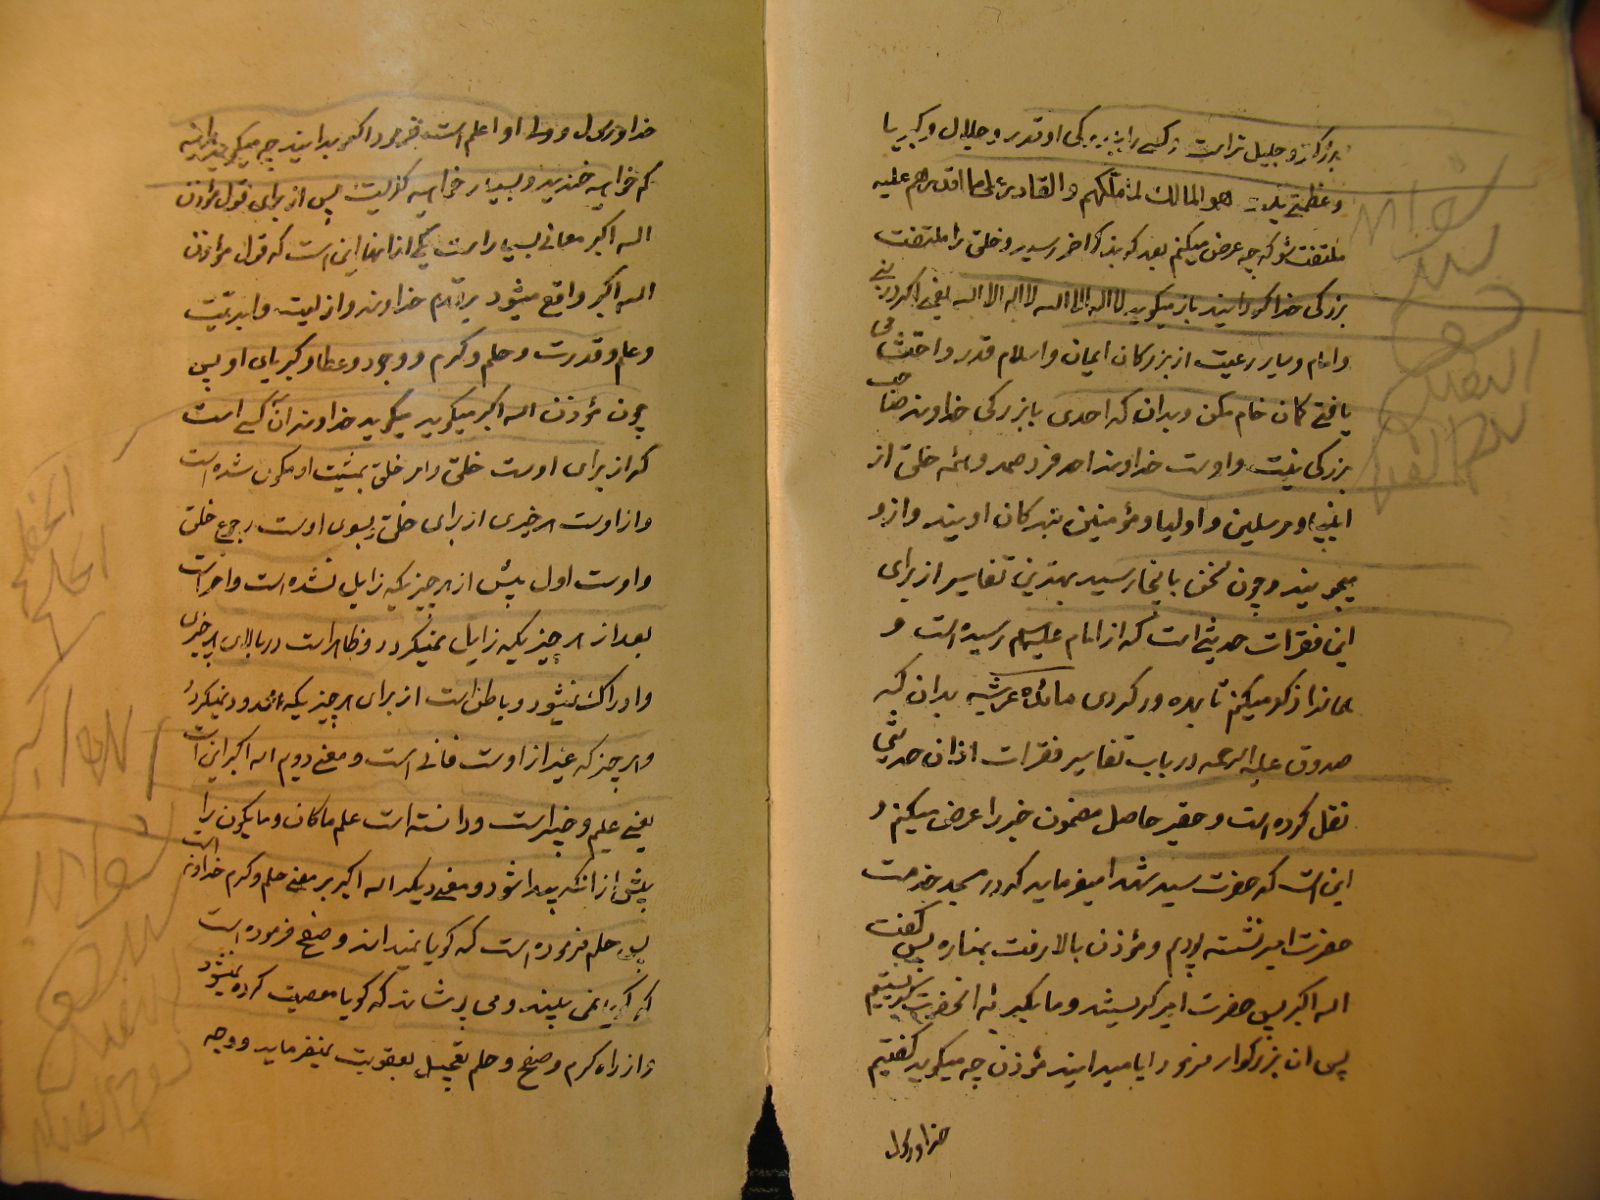 بزرکتر و جلیل تر است و کسی را بزرکی او قدر و جلال و کبریا
و عظمتی هو المالک لما ملکهم و القادر علی ما اقدرهم علیه
ملتفت شو که چه عرض میکنم بعد که بذکر اخر رسید و خلق را ملتفت
بزرکی خدا کردانید باز میکوید لا اله الا الله لا اله الا الله یعنی اکر در نبی
و امام و سایر رعیت از بزرکان ایمان و اسلام قدر و احتشامی
یافتی کمان خام مکن و بدان که احدی با بزرکی خداوند صاحب
بزرکی نیست و اوست خداوند احد فرد صمد و همه خلق از
انبیا و مرسلین و اولیا و مؤمنین بندکان اویند و از او
میجویند و چون سخن باینجا رسید بهترین تفاسیر از برای
این فقرات حدیثی است که از امام علیه السلم رسیده است و
همانرا ذکر میکنم تا بهره ور کردی مائده عرشیه بدان که
صدوق علیه الرحمه در باب تفاسیر فقرات اذان حدیثی
نقل کرده است و حقیر حاصل مضمون خبر را عرض میکنم و
این است که حضرت سید شهدا میفرماید که در مسجد خدمت
حضرت امیر نشسته بودیم و مؤذن بالا رفت بمناره پس کفت
الله اکبر پس حضرت امیر کریستند و ما بکریه آنحضرت کریستیم
پس ان بزرکوار فرمود ایا میدانید مؤذن چه میکوید کفتیم
خدا و رسول
خدا و رسول و ولی او اعلم است فرمود اکر بدانید چه میکوید هراینه
کم خواهید خندید و بسیار خواهید کریست پس از برای قول مؤذن
الله اکبر معانی بسیار است یکی از انها این است که قول مؤذن
الله اکبر واقع میشود بر قدم خداوند و ازلیت و ابدیت
و علم و قدرت و حلم و کرم و وجود و عطا و کبریای او پس
چون مؤذن الله اکبر میکوید میکوید خداوند آن کسی است
که از برای اوست خلق و امر خلق بمشیت او مکون شده است
و از اوست هر خیری از برای خلق بسوی اوست رجوع خلق
و اوست اول پیش از هر چیز یکه زایل نشده است و اخر است
بعد از هر چیز یکه زایل نمیکردد و ظاهر است در بالای هر چیزی
و ادراک نمیشود و باطن است از برای هر چیز یکه محدود نمیکردد
و هر چیز که غیر از اوست فانی است و معنی دویم الله اکبر این است
یعنی علیم و خبیر است و دانسته است علم ما کان و ما یکون را
پیش از انکه پیدا شود و معنی دیکر الله اکبر بر معنی حلم و کرم خداوند است
پس حلم فرموده است که کویا نمیداند و صفح فرموده است
که کویا نمی بیند و می پوشاند که کویا معصیت کرده نمیشود
و از راه کرم و صفح و حلم تعجیل بعقوبت نمیفرماید و وجه